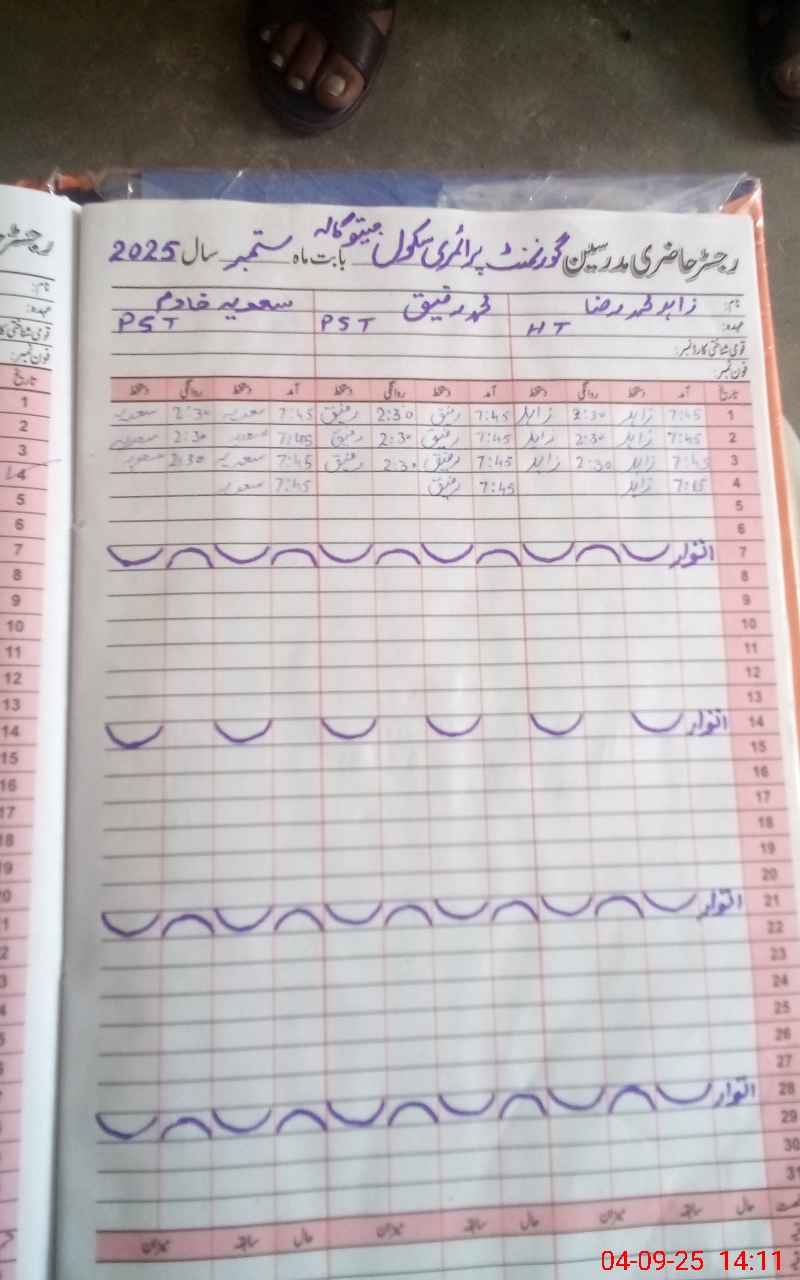 رجسٹر حاضری مدرسین گورنمنٹ پرائمری سکول جیتوگالہ بابت ماہ ستمبر سال 2025
نام: زاہد محمد رضا محمد رفیق سعدیہ خادم
عہدہ: HT PST PST
قومی شناختی کارڈ نمبر:
فون نمبر:
تاریخ آمد دستخط روانگی دستخط آمد دستخط روانگی دستخط آمد دستخط روانگی دستخط
1 7:45 زاہد 2:30 زاہد 7:45 رفیق 2:30 رفیق 7:45 سعدیہ 2:30 سعدیہ
2 7:45 زاہد 2:30 زاہد 7:45 رفیق 2:30 رفیق 7:45 سعدیہ 2:30 سعدیہ
3 7:45 زاہد 2:30 زاہد 7:45 رفیق 2:30 رفیق 7:45 سعدیہ 2:30 سعدیہ
4 7:45 زاہد 7:45 رفیق 7:45 سعدیہ
5
6
7 اتوار
8
9
10
11
12
13
14 اتوار
15
16
17
18
19
20
21 اتوار
22
23
24
25
26
27
28 اتوار
29
30
31
حال سابقہ میزان حال سابقہ میزان حال سابقہ میزان
رجسٹر
نام:
عہدہ:
قومی شناختی
فون نمبر:
تاریخ
1
2
3
4
5
6
7
8
9
10
11
12
13
14
15
16
17
18
19
20
04-09-25 14:11